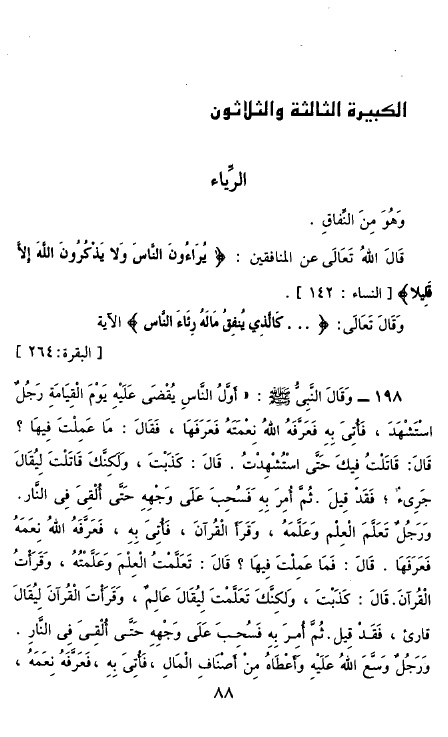 الكبيرة الثالثة والثلاثون
الرِّياء
وَهُوَ مِنَ النِّفاقِ .
قَالَ اللهُ تَعَالَى عن المنافقين : ﴿ يُرَاءُونَ النَّاسَ وَلا يَذْكُرُونَ اللَّهَ إِلاَّ
قَلِيلا﴾ [ النساء : ١٤٢ ] .
وَقَالَ تَعَالَى: ﴿ ... كَالَّذِي يُنفِقُ مَالَهُ رِئَاءَ النَّاسِ ﴾ الآية
[ البقرة: ٢٦٤ ]
١٩٨ ــ وَقَالَ النَّبِيُّ ﷺ : « أَوَّلُ النَّاسِ يُقْضَى عَلَيْهِ يَوْمَ القِيَامَةِ رَجُلٌ
اسْتَشْهَدَ ، فَأُتِىَ بِهِ فَعَرَّفَهُ اللهُ نِعْمَتَهُ فَعَرَفَهَا ، فَقَالَ : مَا عَمِلْتَ فِيهَا ؟
قَالَ: قَاتَلْتُ فِيكَ حَتَّى اسْتُشْهِدْتُ . قَالَ : كَذَبْتَ ، وَلكِنَّكَ قَاتَلْتَ لِيُقَالَ
جَرِىءٌ ؛ فَقَدْ قِيلَ . ثُمَّ أُمِرَ بِهِ فَسُحِبَ عَلَى وَجْهِهِ حَتَّى أُلْقِىَ فِى النَّارِ.
وَرَجُلٌ تَعَلَّمَ العِلْمَ وَعَلَّمَهُ ، وَقَرَأَ القُرْآنَ ، فَأُتِىَ بِهِ ، فَعَرَّفَهُ اللهُ نِعَمَهُ
فَعَرَفَهَا . قَالَ : فَمَا عَمِلْتَ فِيهَا ؟ قَالَ : تَعَلَّمْتُ العِلْمَ وَعَلَّمْتُهُ ، وَقَرَأْتُ
القُرآنَ. قَالَ : كَذَبْتَ ، وَلكِنَّكَ تَعَلَّمْتَ لِيُقَالَ عَالِمٌ ، وَقَرَأْتَ القُرْآنَ لِيُقَالَ
قارئ ، فَقَدْ قِيل . ثُمَّ أُمِرَ بِهِ فَسُحِبَ عَلَى وَجْهِهِ حَتَّى أُلْقِىَ فِى النَّارِ .
وَرَجُلٌ وَسَّعَ اللهُ عَلَيْهِ وَأَعْطَاهُ مِنْ أَصْنَافِ المَالِ ، فَأُتِىَ بِهِ ، فَعَرَّفَهُ نِعَمَهُ ،
٨٨